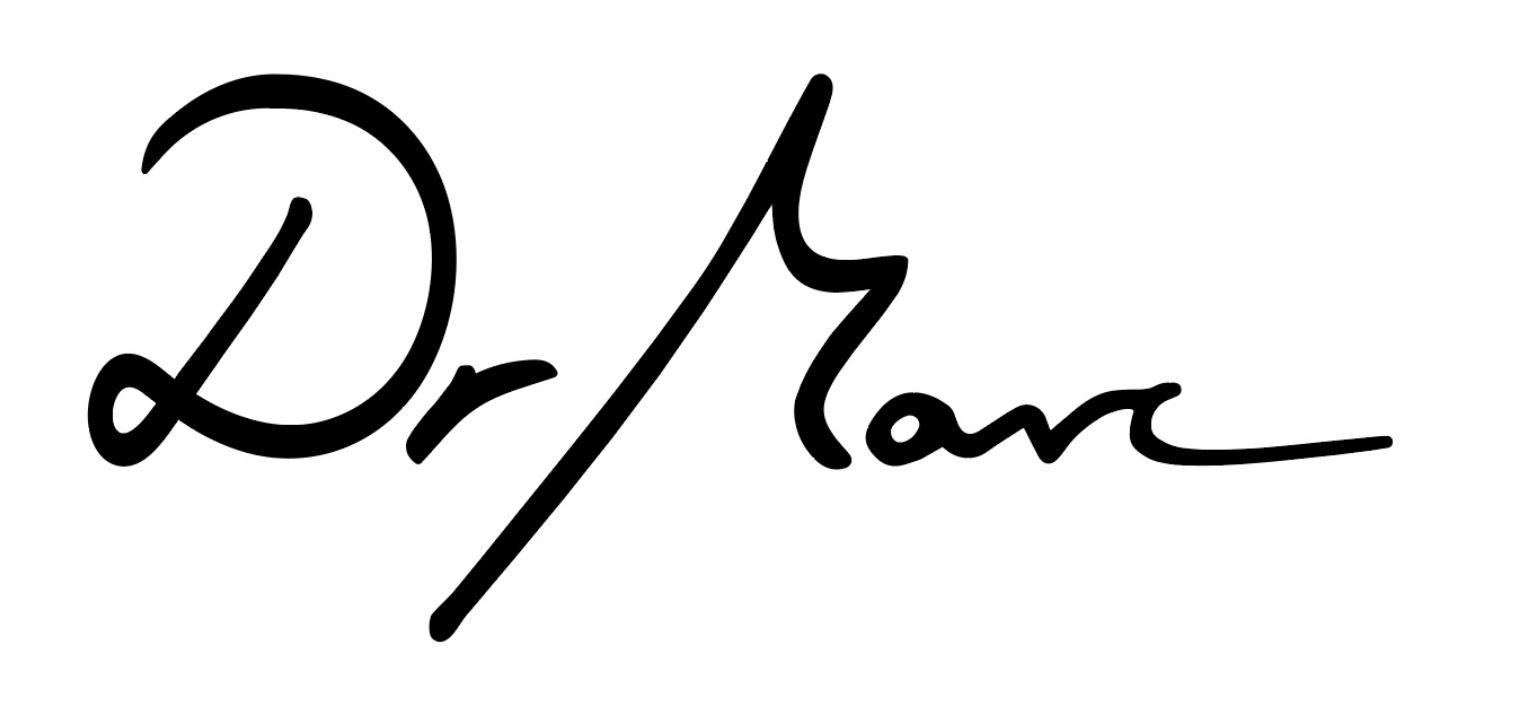 Dr Marc